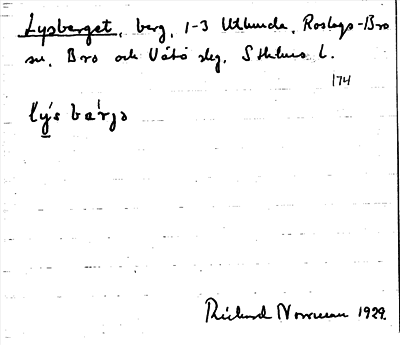 Lysberget, berg, 1-3 Utlunda, Roslags-Bro
sn, Bro och Vätö slg, Sthlms l.
174
lýs bærjə
Richard Norrman 1929.